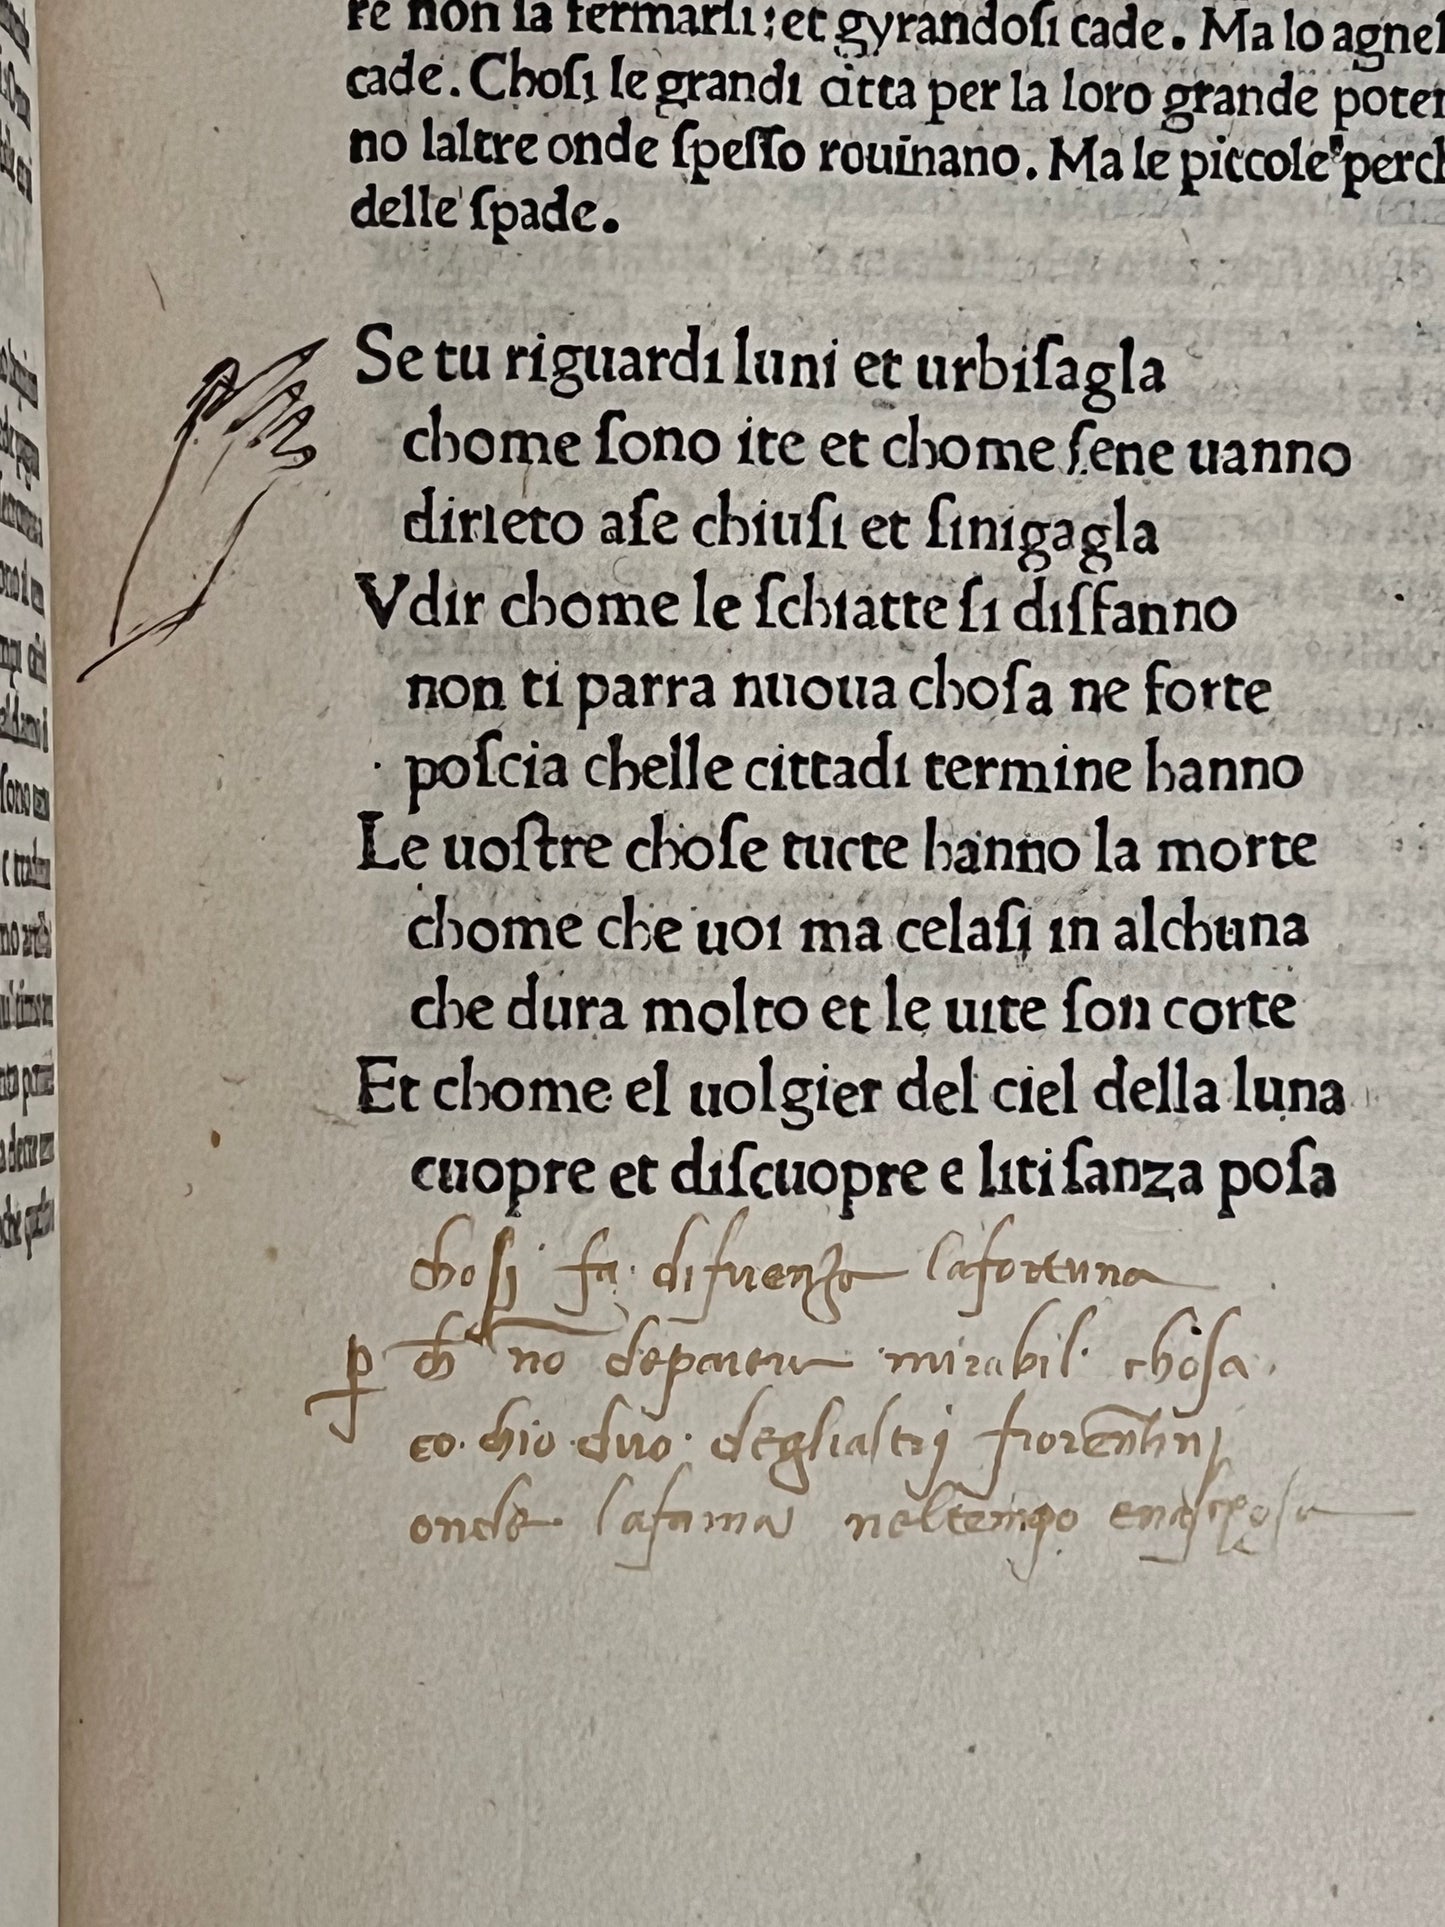 re non sa fermarsi: et gyrandosi cade. Ma lo agnel
cade. Choſi le grandi citta per la loro grande poten
no laltre onde ſpeſſo rouinano. Ma le piccole perch
delle ſpade.
Se tu riguardi luni et urbiſagla
chome ſono ite et chome ſene uanno
dirieto aſe chiuſi et ſinigagla
Vdir chome le ſchiatte ſi diſfanno
non ti parra nuoua choſa ne forte
poſcia chelle cittadi termine hanno
Le uoſtre choſe tucte hanno la morte
chome che uoi ma celaſi in alchuna
che dura molto et le uite ſon corte
Et chome el uolgier del ciel della luna
cuopre et diſcuopre e liti ſanza poſa
choſi fa difirenze lafortuna
p̱ ch̄ nō depārer mirabil choſa
co chio diro deglialtrj fiorēntinj
onde lafama neltēmpo